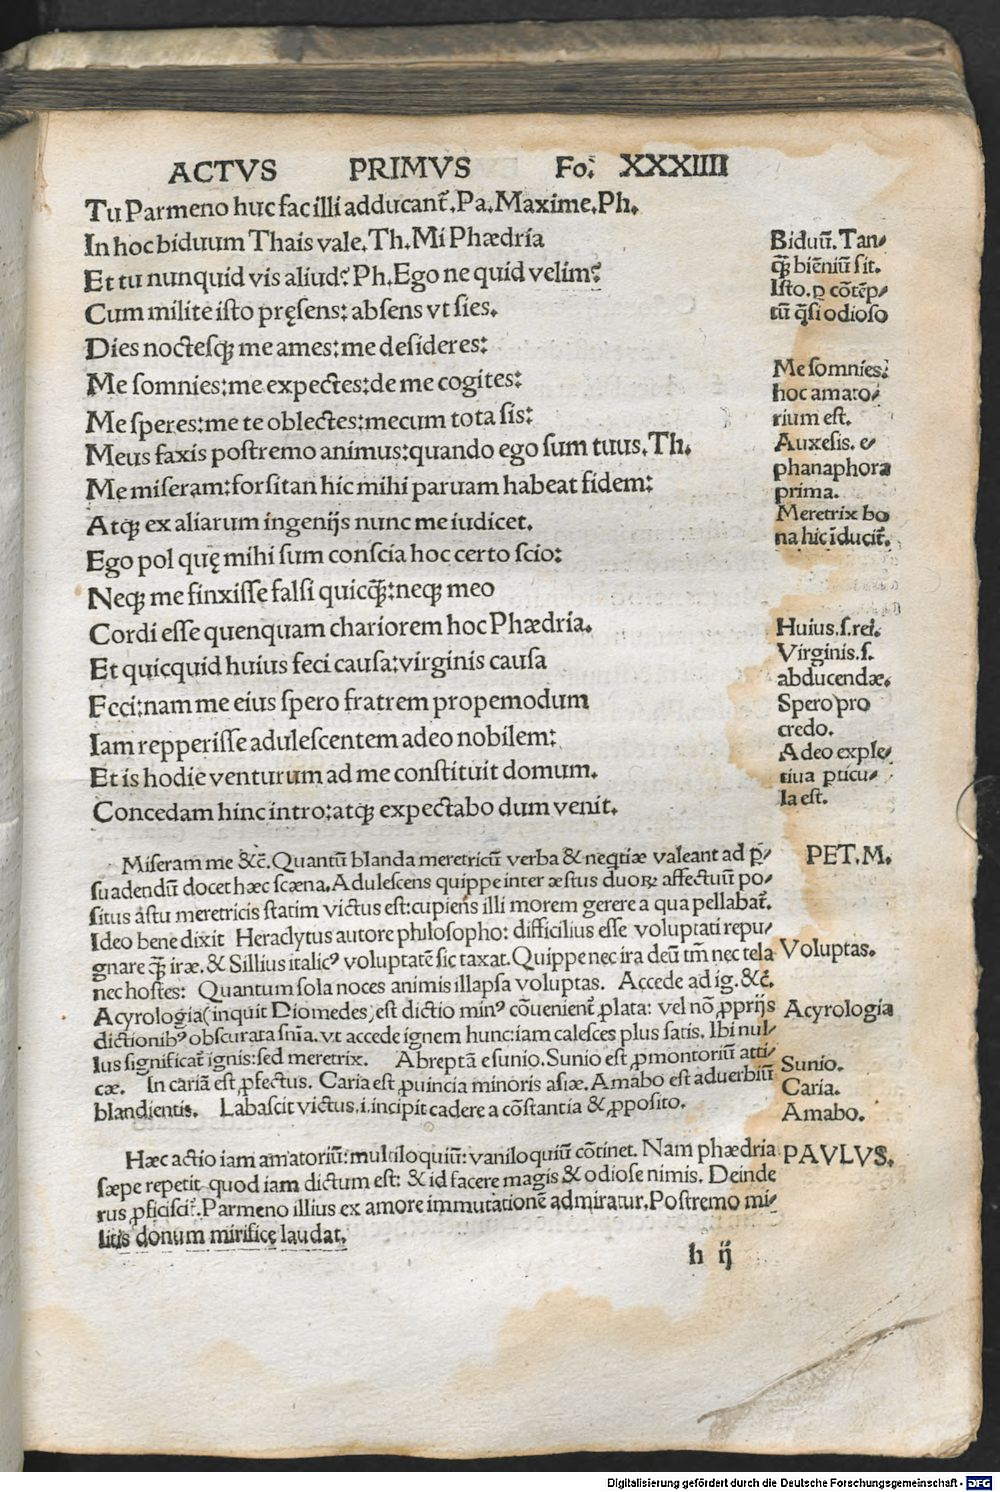 ACTVS PRIMVS Fo: XXXIIII
Tu Parmeno huc fac illi adducant᷑. Pa. Maxime. Ph.
In hoc biduum Thais vale. Th. Mi Phædria
Et tu nunquid vis aliud? Ph. Ego ne quid velim?
Cum milite iſto pręſens: abſens vt ſies.
Dies noctesq; me ames: me deſideres:
Me ſomnies: me expectes: de me cogites:
Me ſperes: me te oblectes: mecum tota ſis:
Meus faxis poſtremo animus: quando ego ſum tuus. Th.
Me miſeram: forſitan hic mihi paruam habeat fidem:
Atq; ex aliarum ingenijs nunc me iudicet.
Ego pol quę mihi ſum conſcia hoc certo ſcio:
Neq; me finxiſſe falſi quicq̄;: neq; meo
Cordi eſſe quenquam chariorem hoc Phædria.
Et quicquid huius feci cauſa: virginis cauſa
Feci: nam me eius ſpero fratrem propemodum
Iam repperiſſe aduleſcentem adeo nobilem:
Et is hodie venturum ad me conſtituit domum.
Concedam hinc intro: atq; expectabo dum venit.
Biduū. Tan⸗
q̄; biēniū ſit.
Iſto. ꝓ cōtēp⸗
tū q̄ſi odioſo
Me ſomnies:
hoc amato⸗
rium eſt.
Auxeſis. e⸗
phanaphora
prima.
Meretrix bo
na hic īducit᷑.
Huius. ſ. rei.
Virginis. ſ.
abducendæ.
Spero pro
credo.
Adeo exple⸗
tiua ꝑticu⸗
la eſt.
Miſeram me &c̄. Quantū blanda meretricū verba & neqtiæ valeant ad ꝑ⸗
ſuadendū docet hæc ſcæna. Aduleſcens quippe inter æſtus duoꝝ affectuū po⸗
ſitus aſtu meretricis ſtatim victus eſt: cupiens illi morem gerere a qua pellabat᷑.
Ideo bene dixit Heraclytus autore philoſopho: difficilius eſſe voluptati repu⸗
gnare q̄; iræ. & Sillius italicꝰ voluptatē ſic taxat. Quippe nec ira deū tm̄ nec tela
nec hoſtes: Quantum ſola noces animis illapſa voluptas. Accede ad ig. &c̄.
Acyrologia (inquit Diomedes) eſt dictio minꝰ cōuenient᷑ ꝓlata: vel nō ꝓprijs
dictionibꝰ obſcurata ſnīa. vt accede ignem hunc: iam caleſces plus ſatis. Ibi nul⸗
lus ſignificat᷑ ignis: ſed meretrix. Abreptā e ſunio. Sunio eſt ꝓmontoriū atti⸗
cæ. In cariā eſt ꝓfectus. Caria eſt ꝓuincia minoris aſiæ. Amabo eſt aduerbiū
blandientis. Labaſcit victus. i. incipit cadere a cōſtantia & ꝓpoſito.
PET. M.
Voluptas.
Acyrologia
Sunio.
Caria.
Amabo.
Hæc actio iam amatoriū: multiloquiū: vaniloquiū cōtinet. Nam phædria
ſæpe repetit quod iam dictum eſt: & id facere magis & odioſe nimis. Deinde
rus ꝓficiſcit᷑. Parmeno illius ex amore immutationē admiratur. Poſtremo mi⸗
litis donum mirificę laudat.
PAVLVS.
h ij
Digitalisierung gefördert durch die Deutsche Forschungsgemeinschaft - DFG